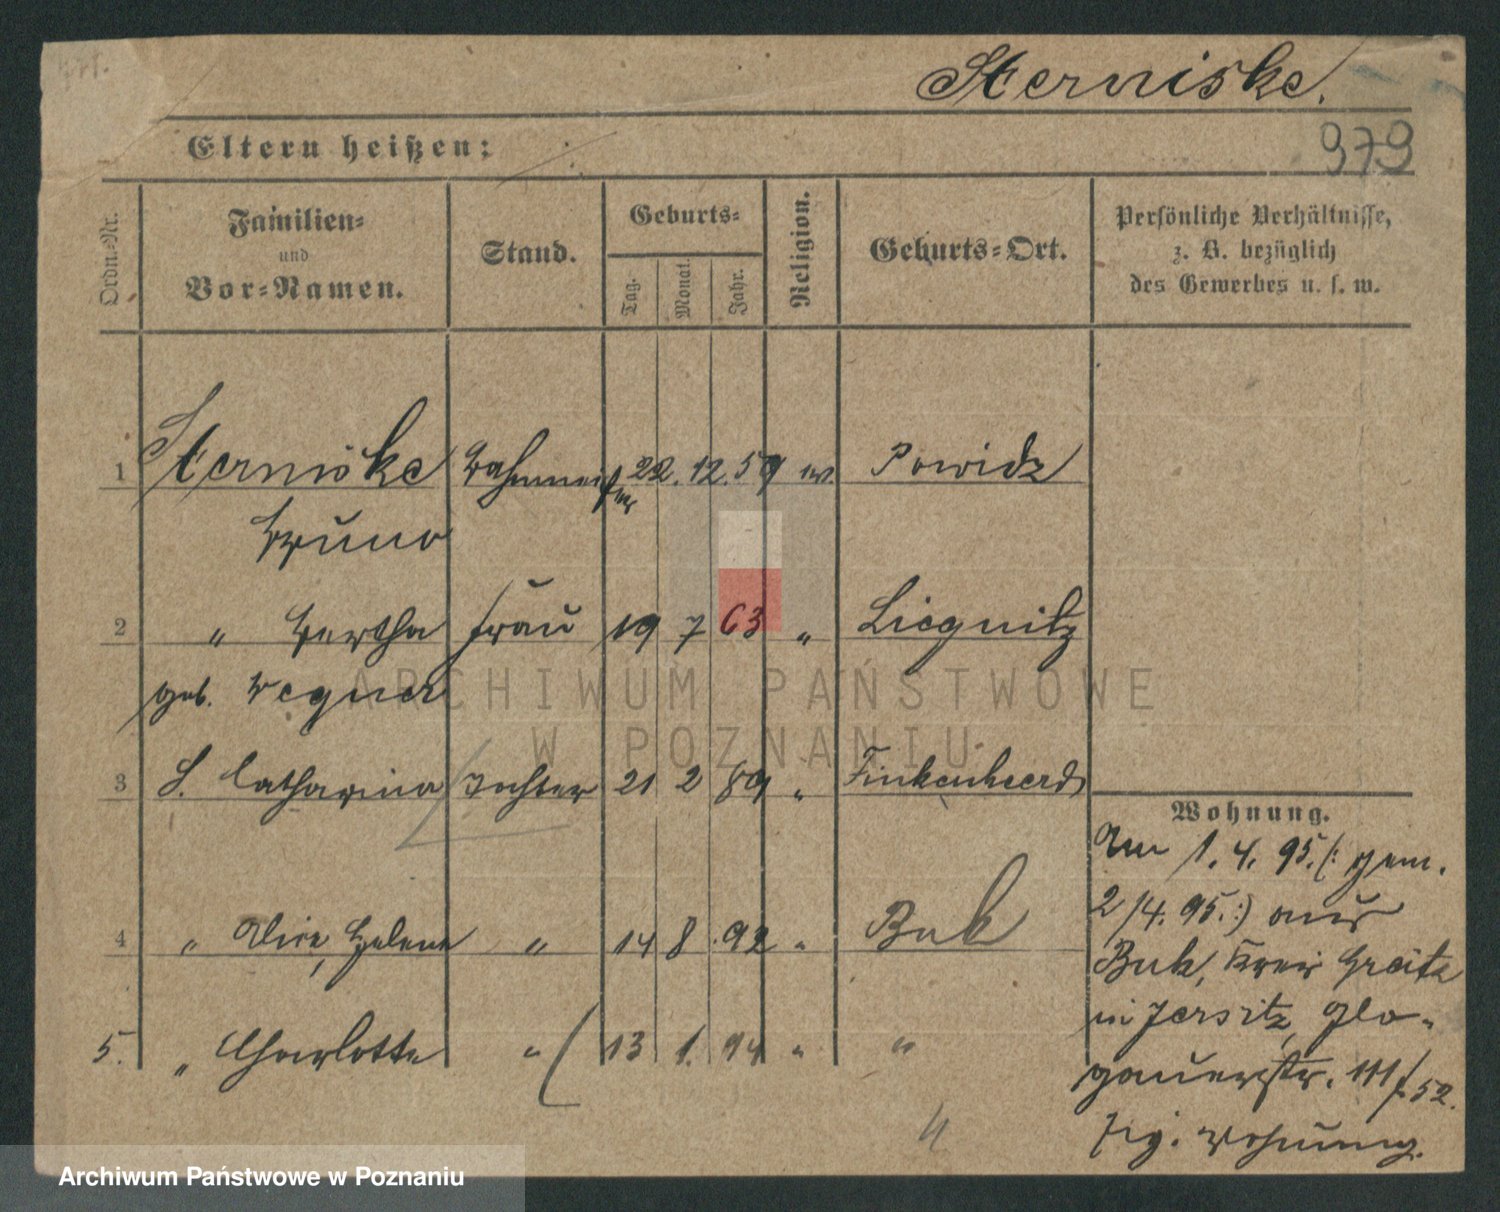 Sterniske.
Eltern heißen:
979
Ordn.-Nr.
Familien-
und
Vor-Namen.
Stand.
Geburts-
Tag.
Monat.
Jahr.
Religion.
Geburts-Ort.
Persönliche Verhältnisse,
z. B. bezüglich
des Gewerbes u. s. w.
1 Sterniske Bahnmeister 22. 12. 59 ev. Powidz
Bruno
2 " Bertha Frau 19 7 63 " Liegnitz
geb. Wegner
ARCHIWUM PAŃSTWOWE
W POZNANIU
3 S. Catharina Tochter 21 2 89 " Finkenheerd
Wohnung.
Am 1. 4. 95. (: gem.
2/4. 95. :) aus
4 " Alice, Helene " 14 8 92 " Buk
Buk, Kreis Graetz
in Jersitz, Glo-
5. " Charlotte " 13 1. 94 " "
gauerstr. 111/52.
Wohnung.
Archiwum Państwowe w Poznaniu